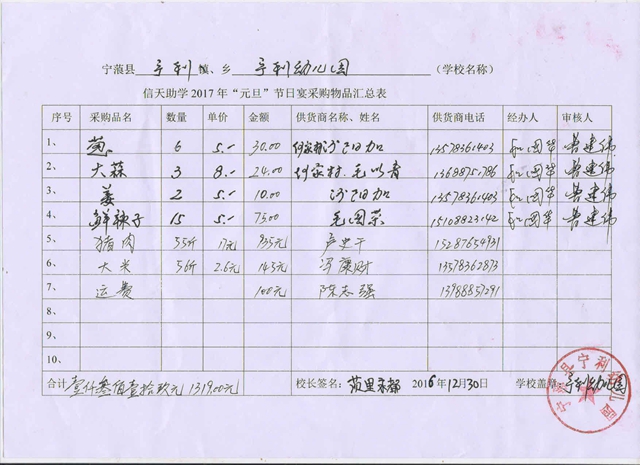 宁蒗县 宁利 镇、乡 宁利幼儿园 （学校名称）
信天助学 2017 年“元旦”节日宴采购物品汇总表
序号 采购品名 数量 单价 金额 供货商名称、姓名 供货商电话 经办人 审核人
1、 葱 6 5.- 30.00 13578361403
2、 大蒜 3 8.- 24.00 何家村 毛以青 13688751786
3、 姜 2 5.- 10.00 13578361403
4、 鲜辣子 15 5.- 75.00 15108823142
5、 猪肉 55斤 17元 935元 15287654931
6、 大米 56斤 2.6元 145元 13578362873
7、 运费 100元 陈志强 13988857291
8、
9、
10、
合计 壹仟叁佰壹拾玖元 1319.00元 校长签名： 2016年12月30日 学校盖章 宁利幼儿园
宁蒗县宁利幼儿园